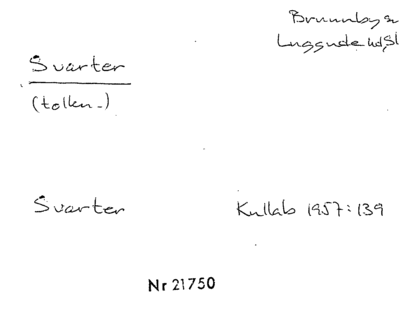 Brunnby sn
Luggude hd, Sk
Svarter
(tolkn.)
Svarter Kullab 1957:139
Nr 21750